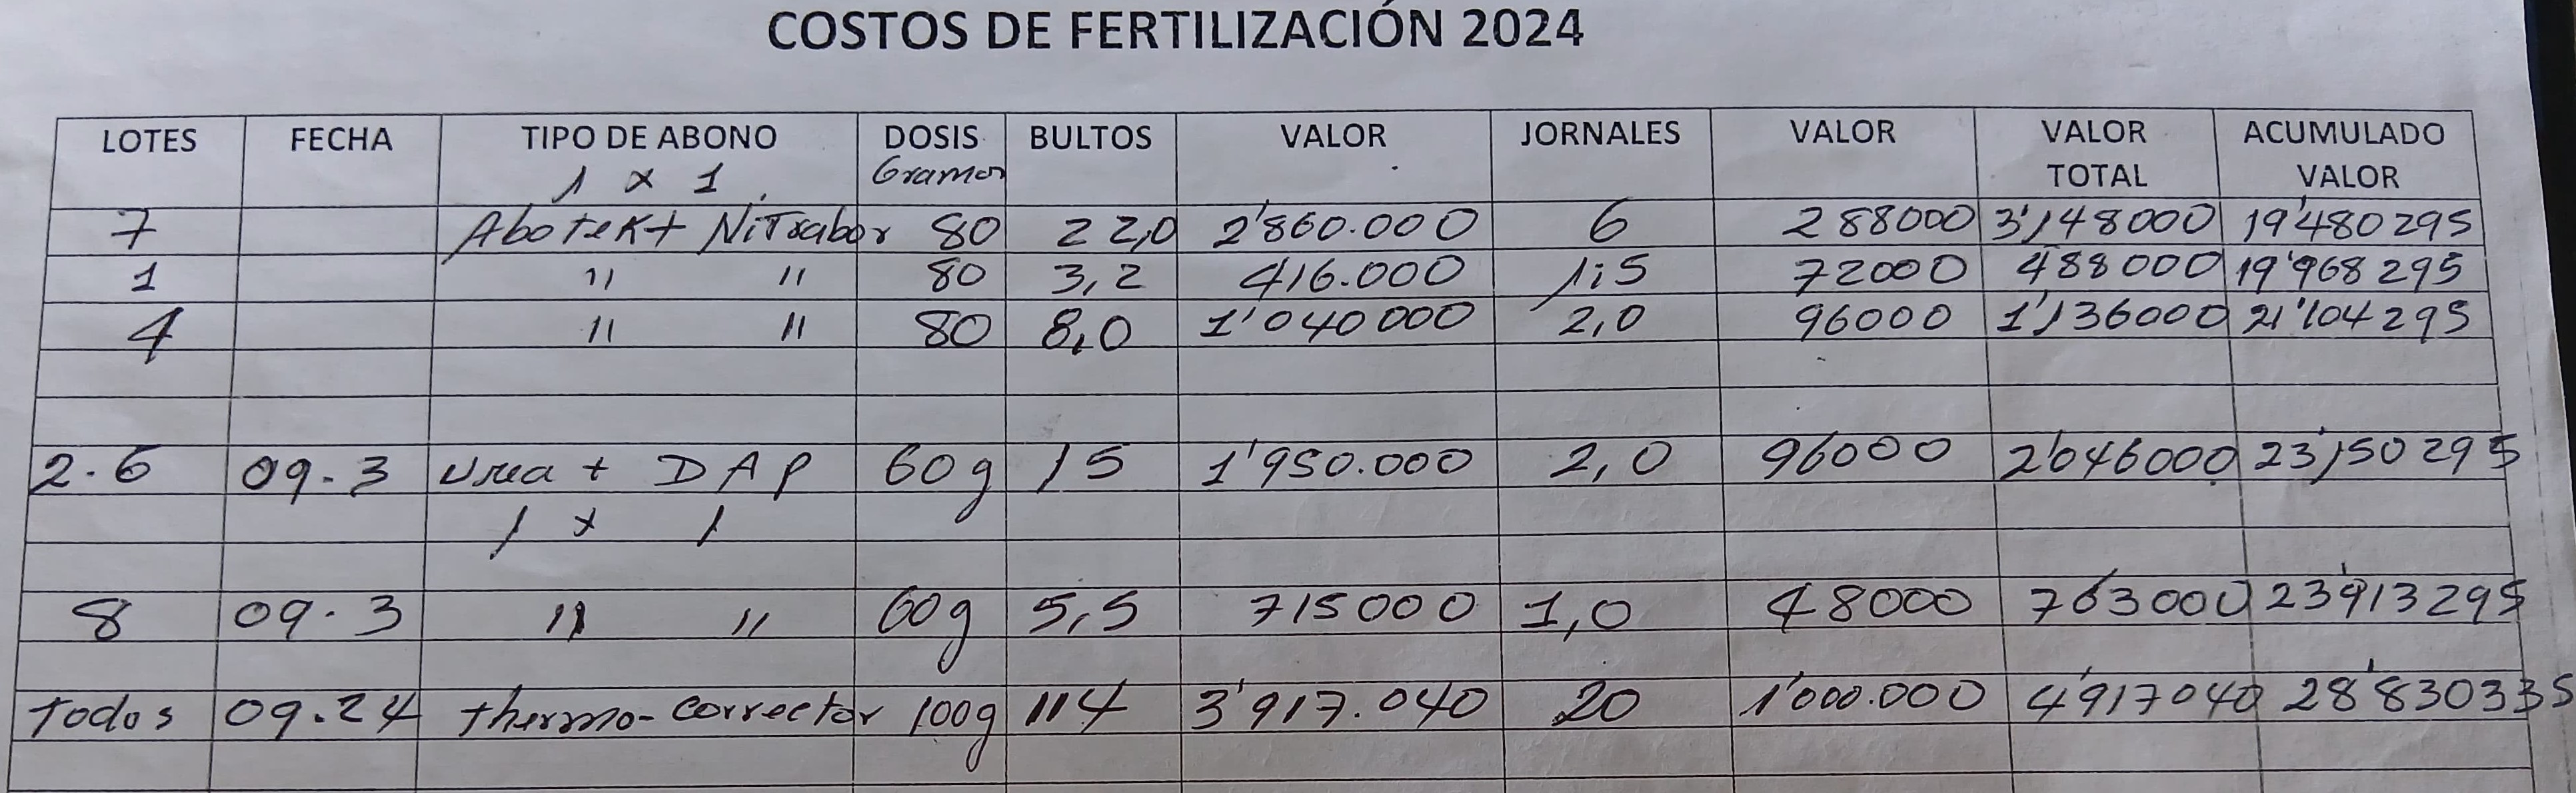 COSTOS DE FERTILIZACIÓN 2024
LOTES FECHA TIPO DE ABONO DOSIS BULTOS VALOR JORNALES VALOR VALOR ACUMULADO
1 x 1. Gramos TOTAL VALOR
7 Abotek + Nitrabor 80 22,0 2'860.000 6 288000 3'148000 19'480295
1 " " 80 3,2 416.000 1,5 72000 488000 19'968295
4 " " 80 8,0 1'040000 2,0 96000 1'136000 21'104295
2.6 09.3 Urea + DAP 60g 15 1'950.000 2,0 96000 2'046000 23'150295
1 x 1
8 09.3 " " 60g 5,5 715000 1,0 48000 763000 23'913295
Todos 09.24 thermo-corrector 100g 114 3'917.040 20 1'000.000 4'917040 28'830335